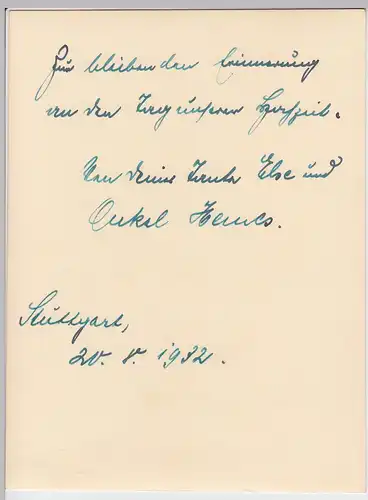 Zur bleibenden Erinnerung
an den Tag unserer Hochzeit.
Von deiner Tante Else und
Onkel
Stuttgart,
20. 8. 1932.